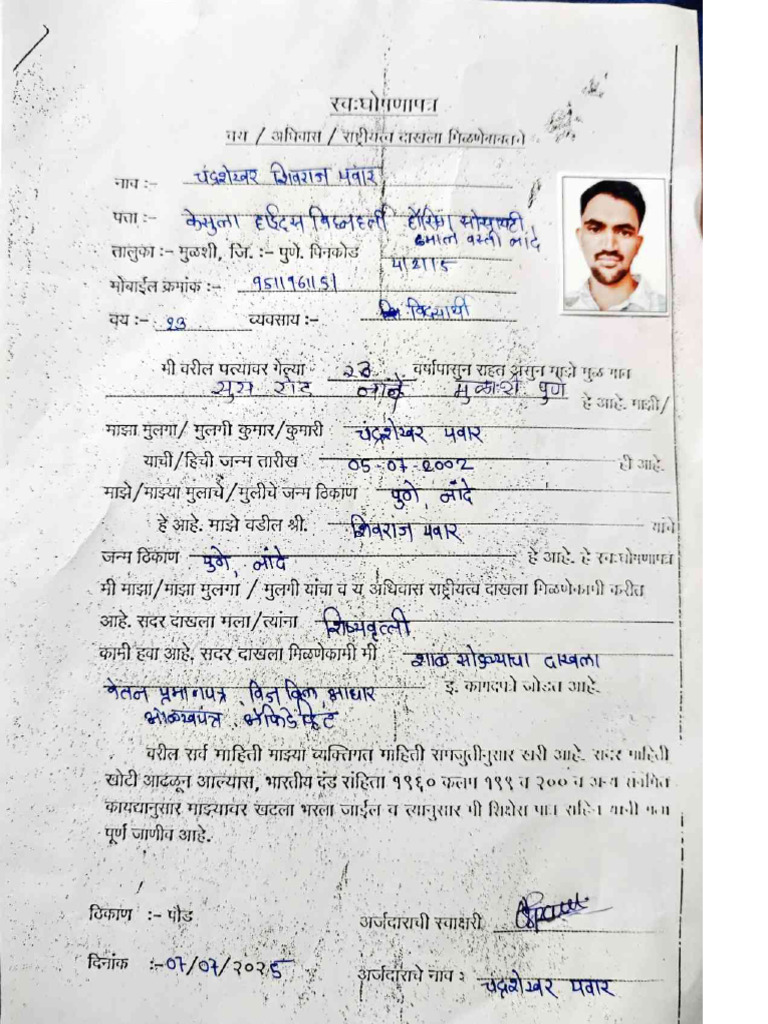 स्वःघोषणापत्र
वय / अधिवास / राष्ट्रीयत्व दाखला मिळणेबाबतचे
नाव :- चंद्रशेखर शिवराज पवार
पत्ता :- केसुला हाईटस विघ्नहर्ता हौसिंग सोसायटी
ढमाले वस्ती नांदे
तालुका :- मुळशी, जि. :- पुणे. पिनकोड 412115
मोबाईल क्रमांक :- 9511961151
वय :- 23 व्यवसाय :- विद्यार्थी
मी वरील पत्यावर गेल्या 23 वर्षापासुन राहत असुन माझे मुळ गाव
सुस रोड नांदे मुळशी पुणे हे आहे. माझी/
माझा मुलगा/ मुलगी कुमार/कुमारी चंद्रशेखर पवार
याची/हिची जन्म तारीख 05-07-2002 ही आहे.
माझे/माझ्या मुलाचे/मुलीचे जन्म ठिकाण पुणे, नांदे
हे आहे. माझे वडील श्री. शिवराज पवार यांचे
जन्म ठिकाण पुणे, नांदे हे आहे. हे स्वःघोषणापत्र
मी माझा/माझा मुलगा / मुलगी यांचा व य अधिवास राष्ट्रीयत्व दाखला मिळणेकामी करीत
आहे. सदर दाखला मला/त्यांना शिष्यवृत्ती
कामी हवा आहे, सदर दाखला मिळणेकामी मी शाळा सोडल्याचा दाखला
वेतन प्रमाणपत्र, विज बिल, आधार इ. कागदपत्रे जोडत आहे.
ओळखपत्र, अॅफिडेव्हिट
वरील सर्व माहिती माझ्या व्यक्तिगत माहिती समजुतीनुसार खरी आहे. सदर माहिती
खोटी आढळून आल्यास, भारतीय दंड संहिता १९६० कलम १९९ व २०० व अन्य संबंधित
कायद्यानुसार माझ्यावर खटला भरला जाईल व त्यानुसार मी शिक्षेस पात्र राहिन याची मला
पूर्ण जाणीव आहे.
ठिकाण :- पौड
अर्जदाराची स्वाक्षरी
दिनांक :- 07/07/2025
अर्जदाराचे नाव : चंद्रशेखर पवार